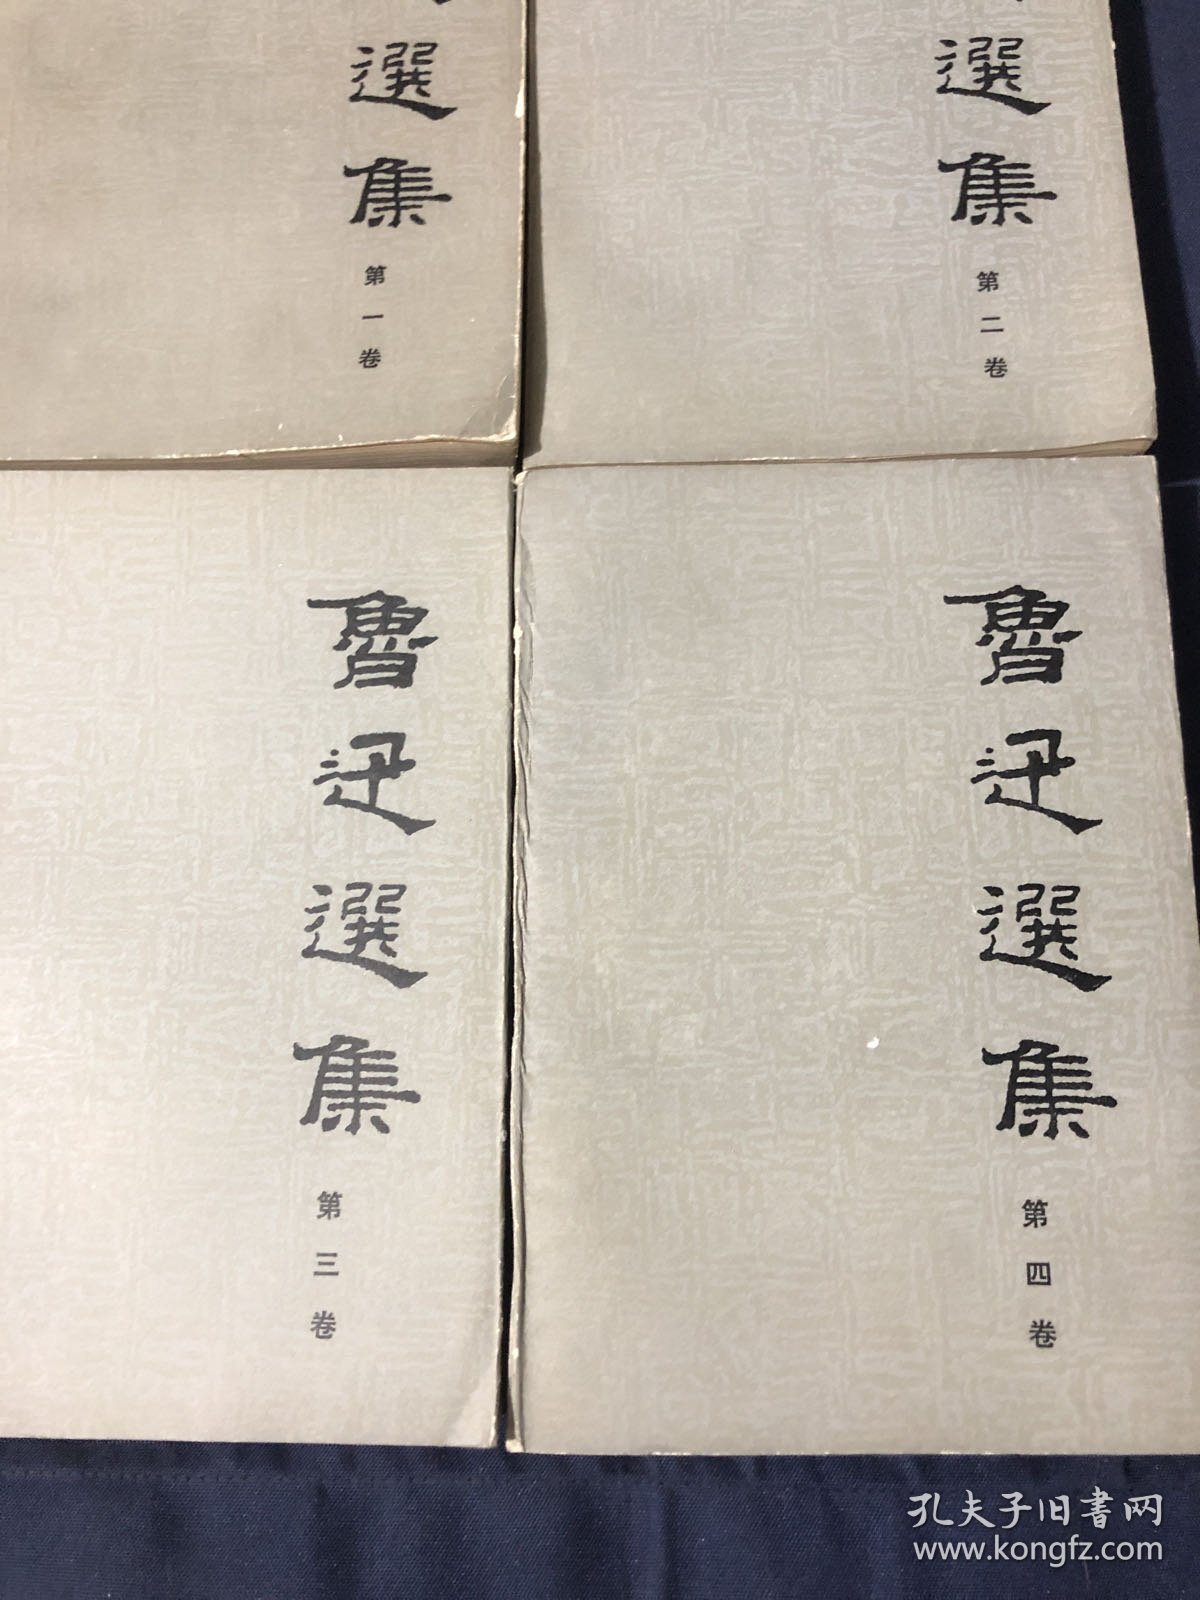 選集
第一卷
選集
第二卷
魯迅選集
第三卷
魯迅選集
第四卷
孔夫子旧書网
www.kongfz.com